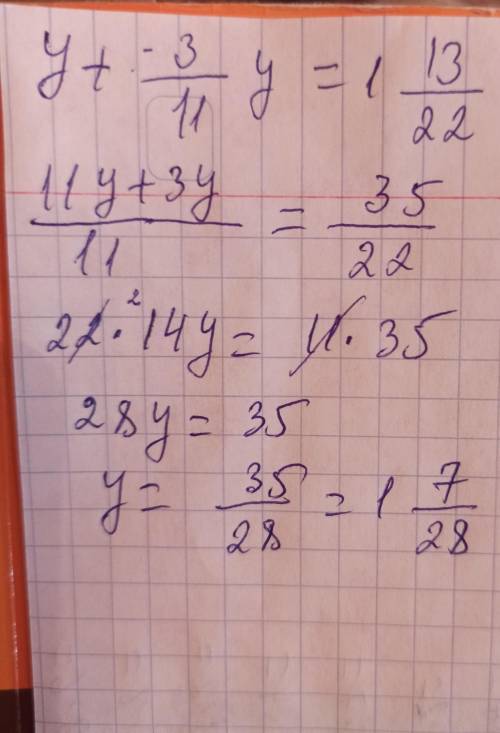 y + -3/11 y = 1 13/22
11y+3y/11 = 35/22
22 · 2 14y = 11 · 35
28y = 35
y = 35/28 = 1 7/28